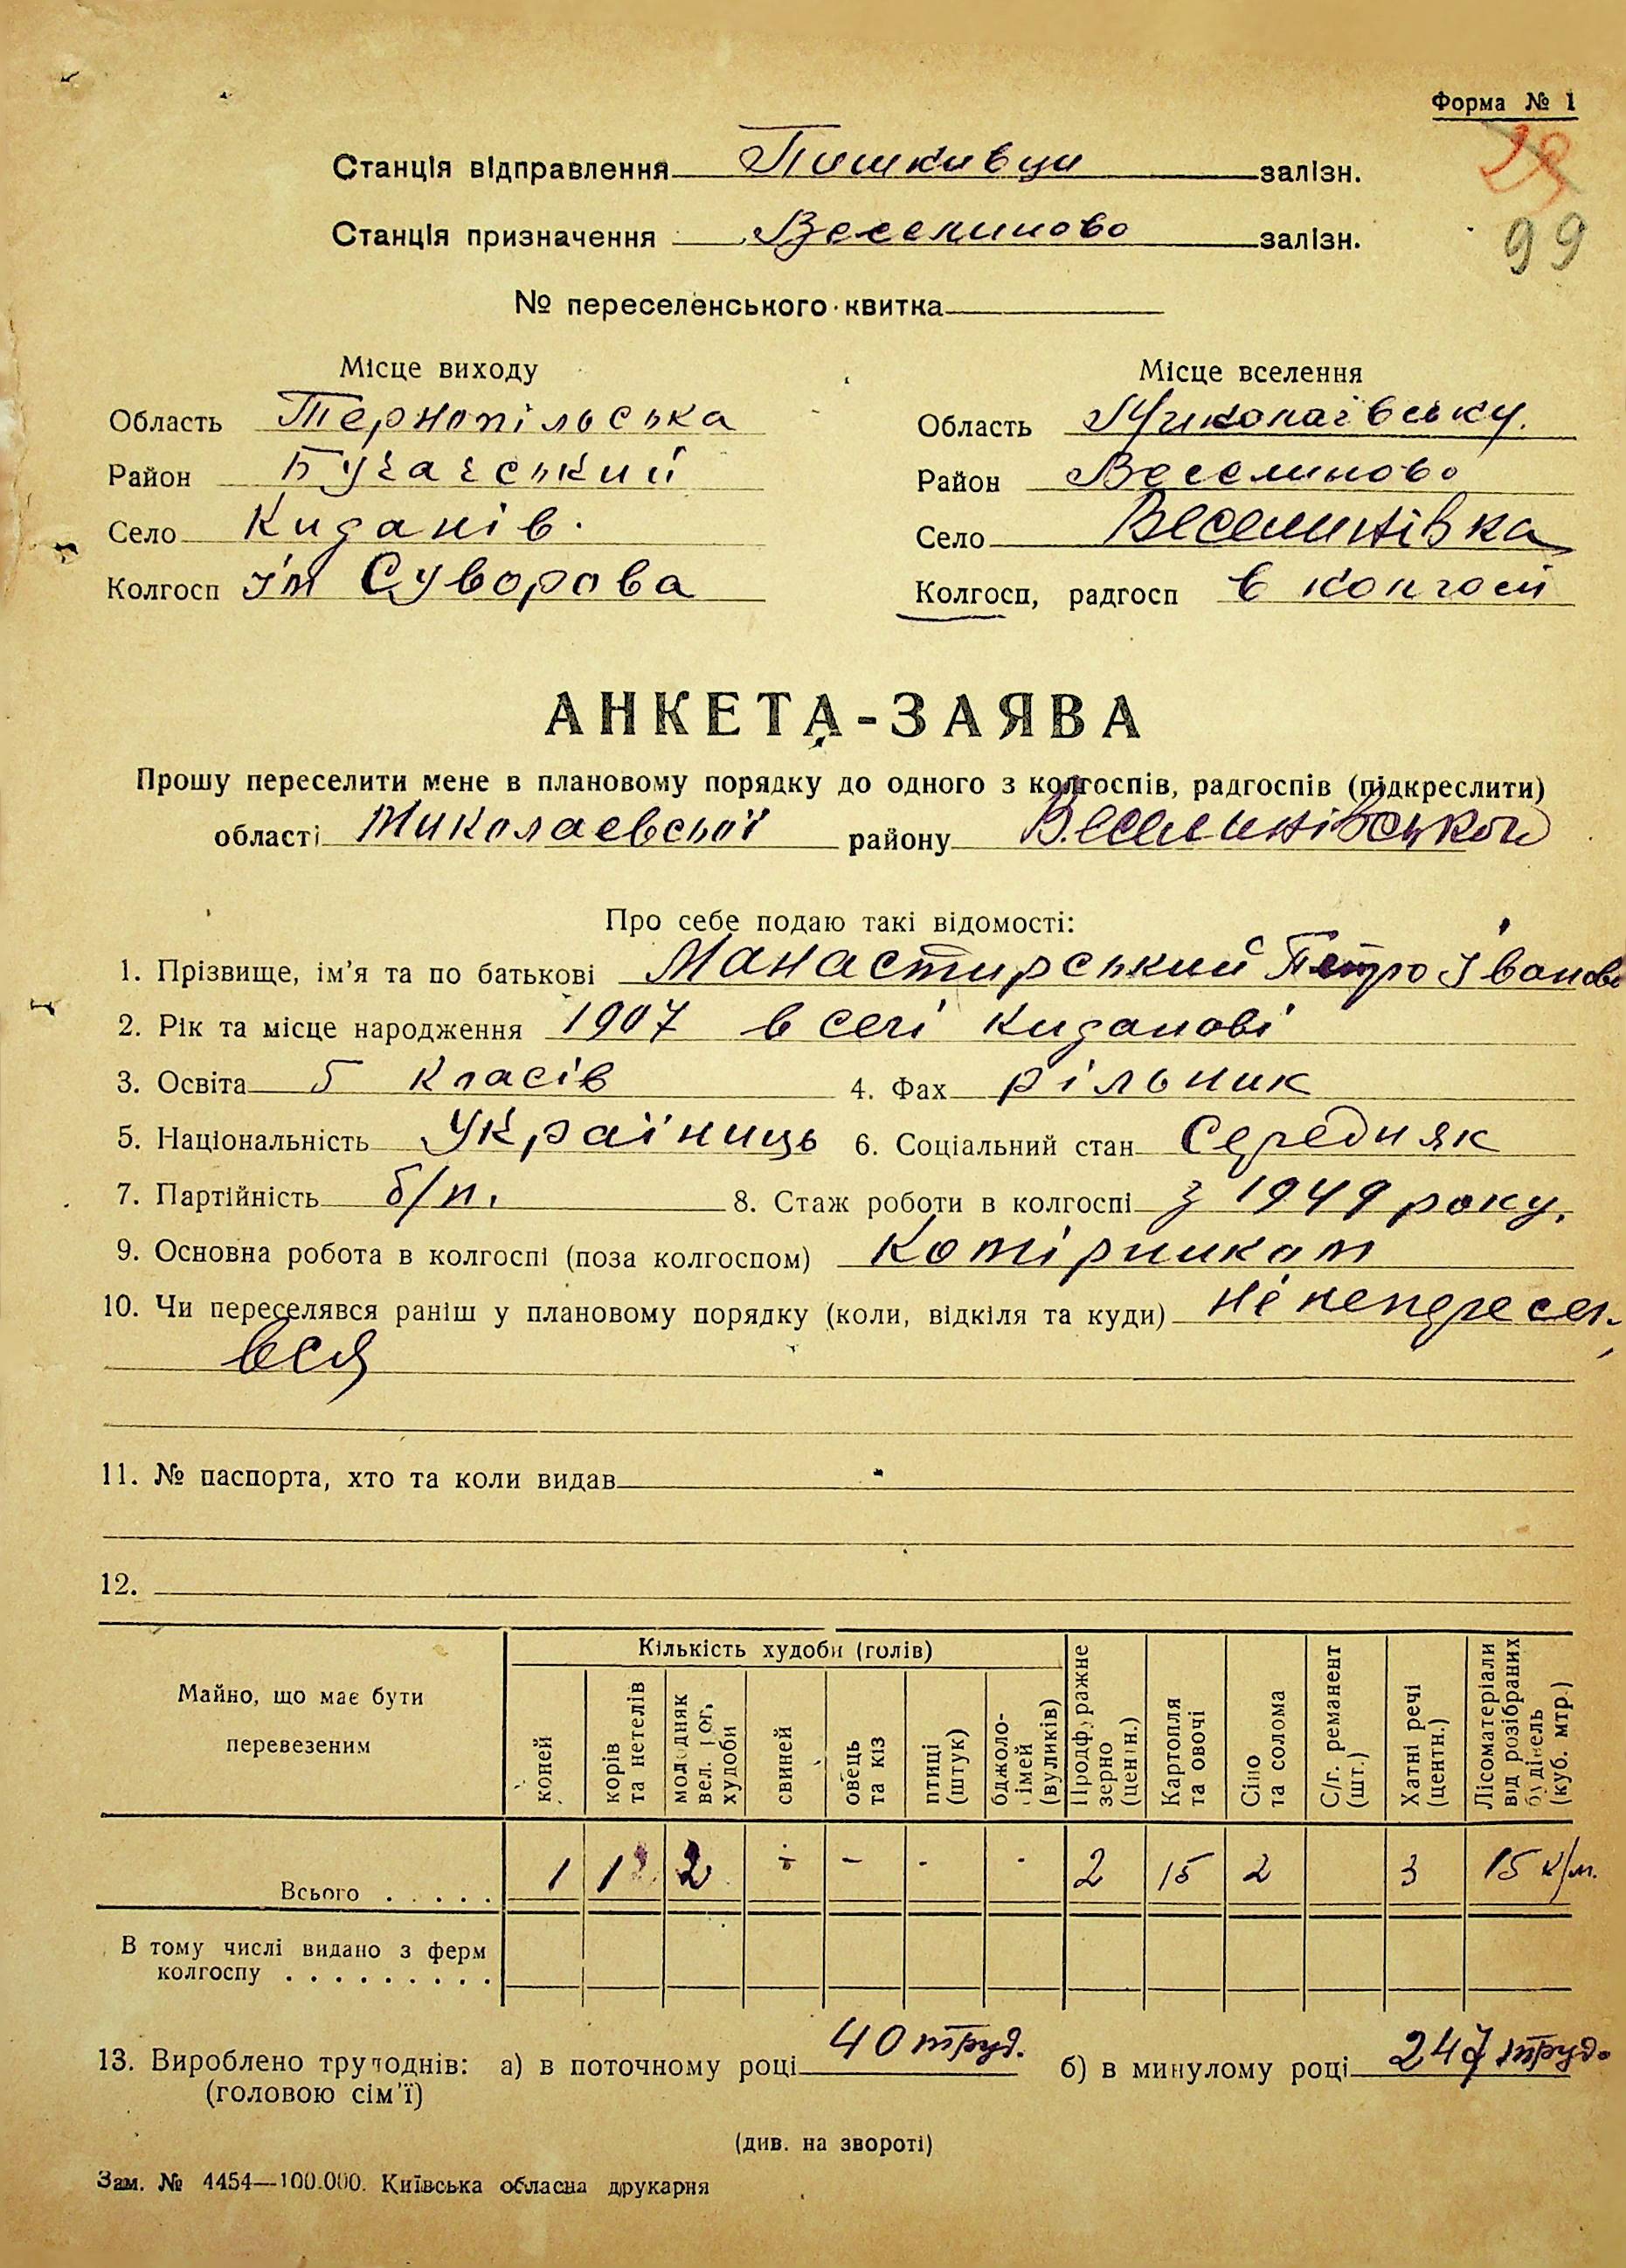 Форма № 1
29
99
Станція відправлення Пишкивци залізн.
Станція призначення Веселиново залізн.
№ переселенського квитка
Місце виходу Місце вселення
Область Тернопільська Область Миколаївську.
Район Бучачський Район Веселиново
Село Киданів. Село Веселинівка
Колгосп Ім Суворова Колгосп, радгосп в колгосп
АНКЕТА-ЗАЯВА
Прошу переселити мене в плановому порядку до одного з колгоспів, радгоспів (підкреслити)
області Миколаевської району Веселинівської
Про себе подаю такі відомості:
1. Прізвище, ім’я та по батькові Манастирський Петро Іванов
2. Рік та місце народження 1907 в селі Киданові
3. Освіта 5 класів 4. Фах рільник
5. Національність Українць 6. Соціальний стан Середняк
7. Партійність б/п. 8. Стаж роботи в колгоспі з 1949 року.
9. Основна робота в колгоспі (поза колгоспом)
10. Чи переселявся раніш у плановому порядку (коли, відкіля та куди) не
вся
11. № паспорта, хто та коли видав
12.
Майно, що має бути перевезеним
Кількість худоби (голів)
коней
корів та нетелів
молодняк вел. рог. худоби
свиней
овець та кіз
птиці (штук)
бджоло-сімей (вуликів)
Продфуражне зерно (центн.)
Картопля та овочі
Сіно та солома
С/г. реманент (шт.)
Хатні речі (центн.)
Лісоматеріали від розібраних будівель (куб. мтр.)
Всього . . . . . 1 1 2 2 - - - - 2 15 2 3 15 к/м.
В тому числі видано з ферм
колгоспу . . . . . . . . .
13. Вироблено трудоднів: а) в поточному році 40 труд. б) в минулому році 247 труд.
(головою сім’ї)
(див. на звороті)
Зам. № 4454—100.000. Київська обласна друкарня